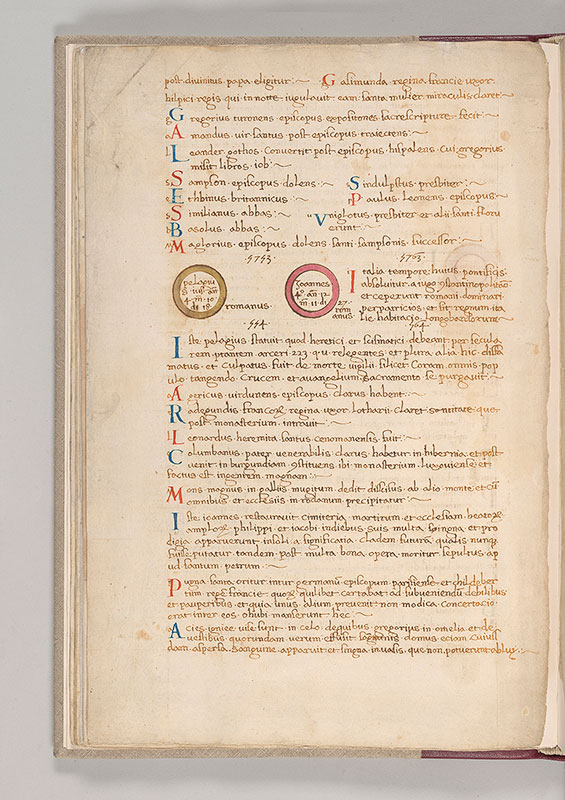 post divinitus papa eligitur :~ Galimunda regina francie uxor
hilpici regis qui in nocte iugulavit eam santa mulier miraculis claret~
Gregorius turonens episcopus expositiones sacre scripture fecit :~
Amandus vir santus post episcopus traiectens :~
Leander gothos convertit post episcopus hispalens cui gregorius
misit libros iob :~
Sampson episcopus dolens :~ Sindulpstus presbiter :~
Sethbinus britannicus :~ Paulus leonens episcopus~
Similianus abbas :~ Vniglotus presbiter et alii santi floru
Basolus abbas :~ erunt :~
Maglorius episcopus dolens santi sampsonis successor :~
5753 5763
pelagiu
romanus
ioannes
27
rom
anus
Italia tempore huius pontificis
absoluitur a iugo
et ceperunt romani dominari
per patricios et sit regnum ita
lie habitacio longobardorum~
554 564
Iste pelagius stavit quod heretici et scismatici debeant per secula
rem arceri 223 q v relegentes et plura alia hic dissi
matus et culpatus fuit de morte vigilii silicet coram omnis pop
ulo tangendo crucem et avangelium sacramento se purgavit~
Agericus virdunens episcopus clarus habent~
Radegundis regina uxor lotharii claret santitate que
post monasterium intravit~
Leonardus heremita santus cenomanensis fuit :~
Columbanus pater venerabilis clarus habetur in hibernia et post
venit in burgundiam ibi monasterium luxoviense et
factus est ingentem magnam :~
Mons magnus in galliis mugitum dedit discisus ab alio monte et cum
omnibus et ecclesiis in rodanum precipitatur :~
Iste ioannes restauravit cimiteria martirum et ecclesiam
philippi et iacobi in diebus suis multa singna et pro
digia apparverunt insoli a significatia cladem futuram qualis nunqu
fuisse putatur tandem post multa bona opera moritur sepultus ap
ud santum petrum :~
Pugna santa oritur intur germanum episcopum parisiense et childeber
tum rege francie quilibet certabat ad iubveniendu debilibus
et pauperibus et quia unus alium prevenit non modica concertacio
erat inter eos ohubi manserunt hec~
Acies igniee vise sunt in celo de quibus gregorius in omelia et de
quorundam verum effusit sagwinis domus eciam cuiusl
dam aspersa sanguine apparvit et singna in vasis que non potverunt ablui~